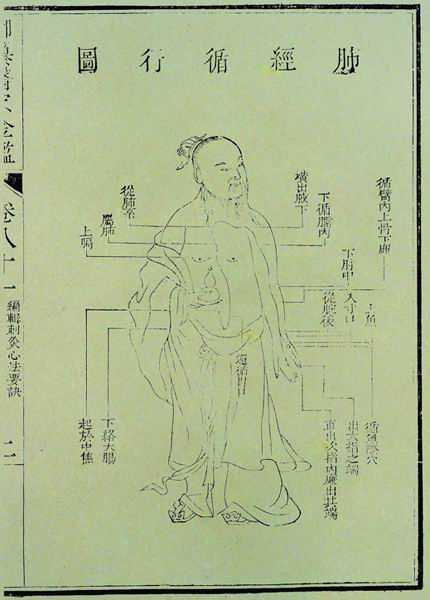 肺經循行圖
循臂內上骨下廉
橫出腋下
下循臑內
下肘中
入寸口
上魚
從腕後
循魚際穴
出大指之端
直出次指內廉出其端
從肺系
屬肺
上膈
還循
下絡大腸
起於中焦
纂醫宗金鑑
卷八十一
編輯刺灸心法要訣